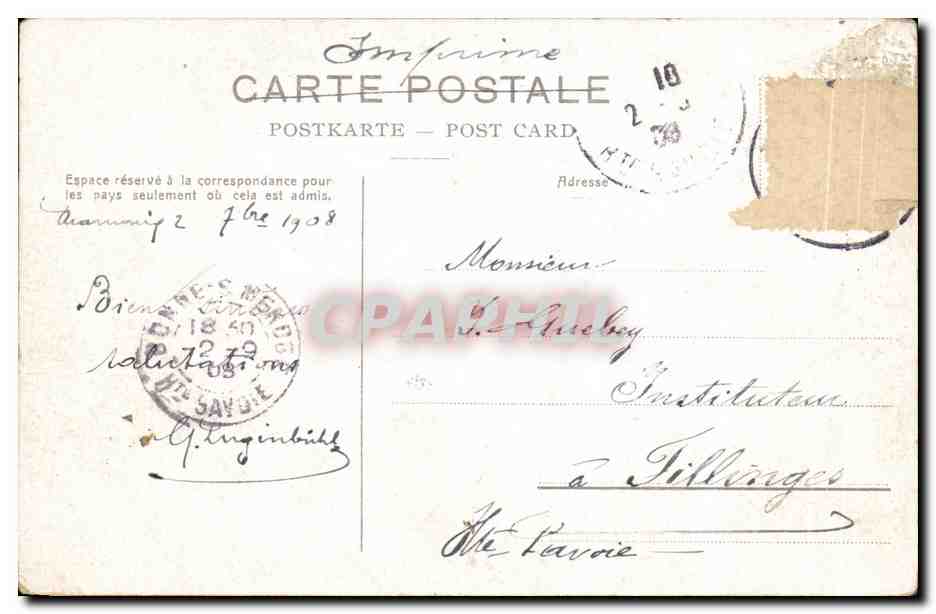 Imprimé
CARTE POSTALE
POSTKARTE — POST CARD
10
2
08
Hte
Espace réservé à la correspondance pour
les pays seulement où cela est admis.
Adresse
2 7bre 1908
Monsieur
Bien
salutations
G. Luginbühl
BONNE-S-MENOGE
18 30
2 -9
08
Hte SAVOIE
CPAPHIL
J.
Instituteur
à Fillinges
Hte Savoie